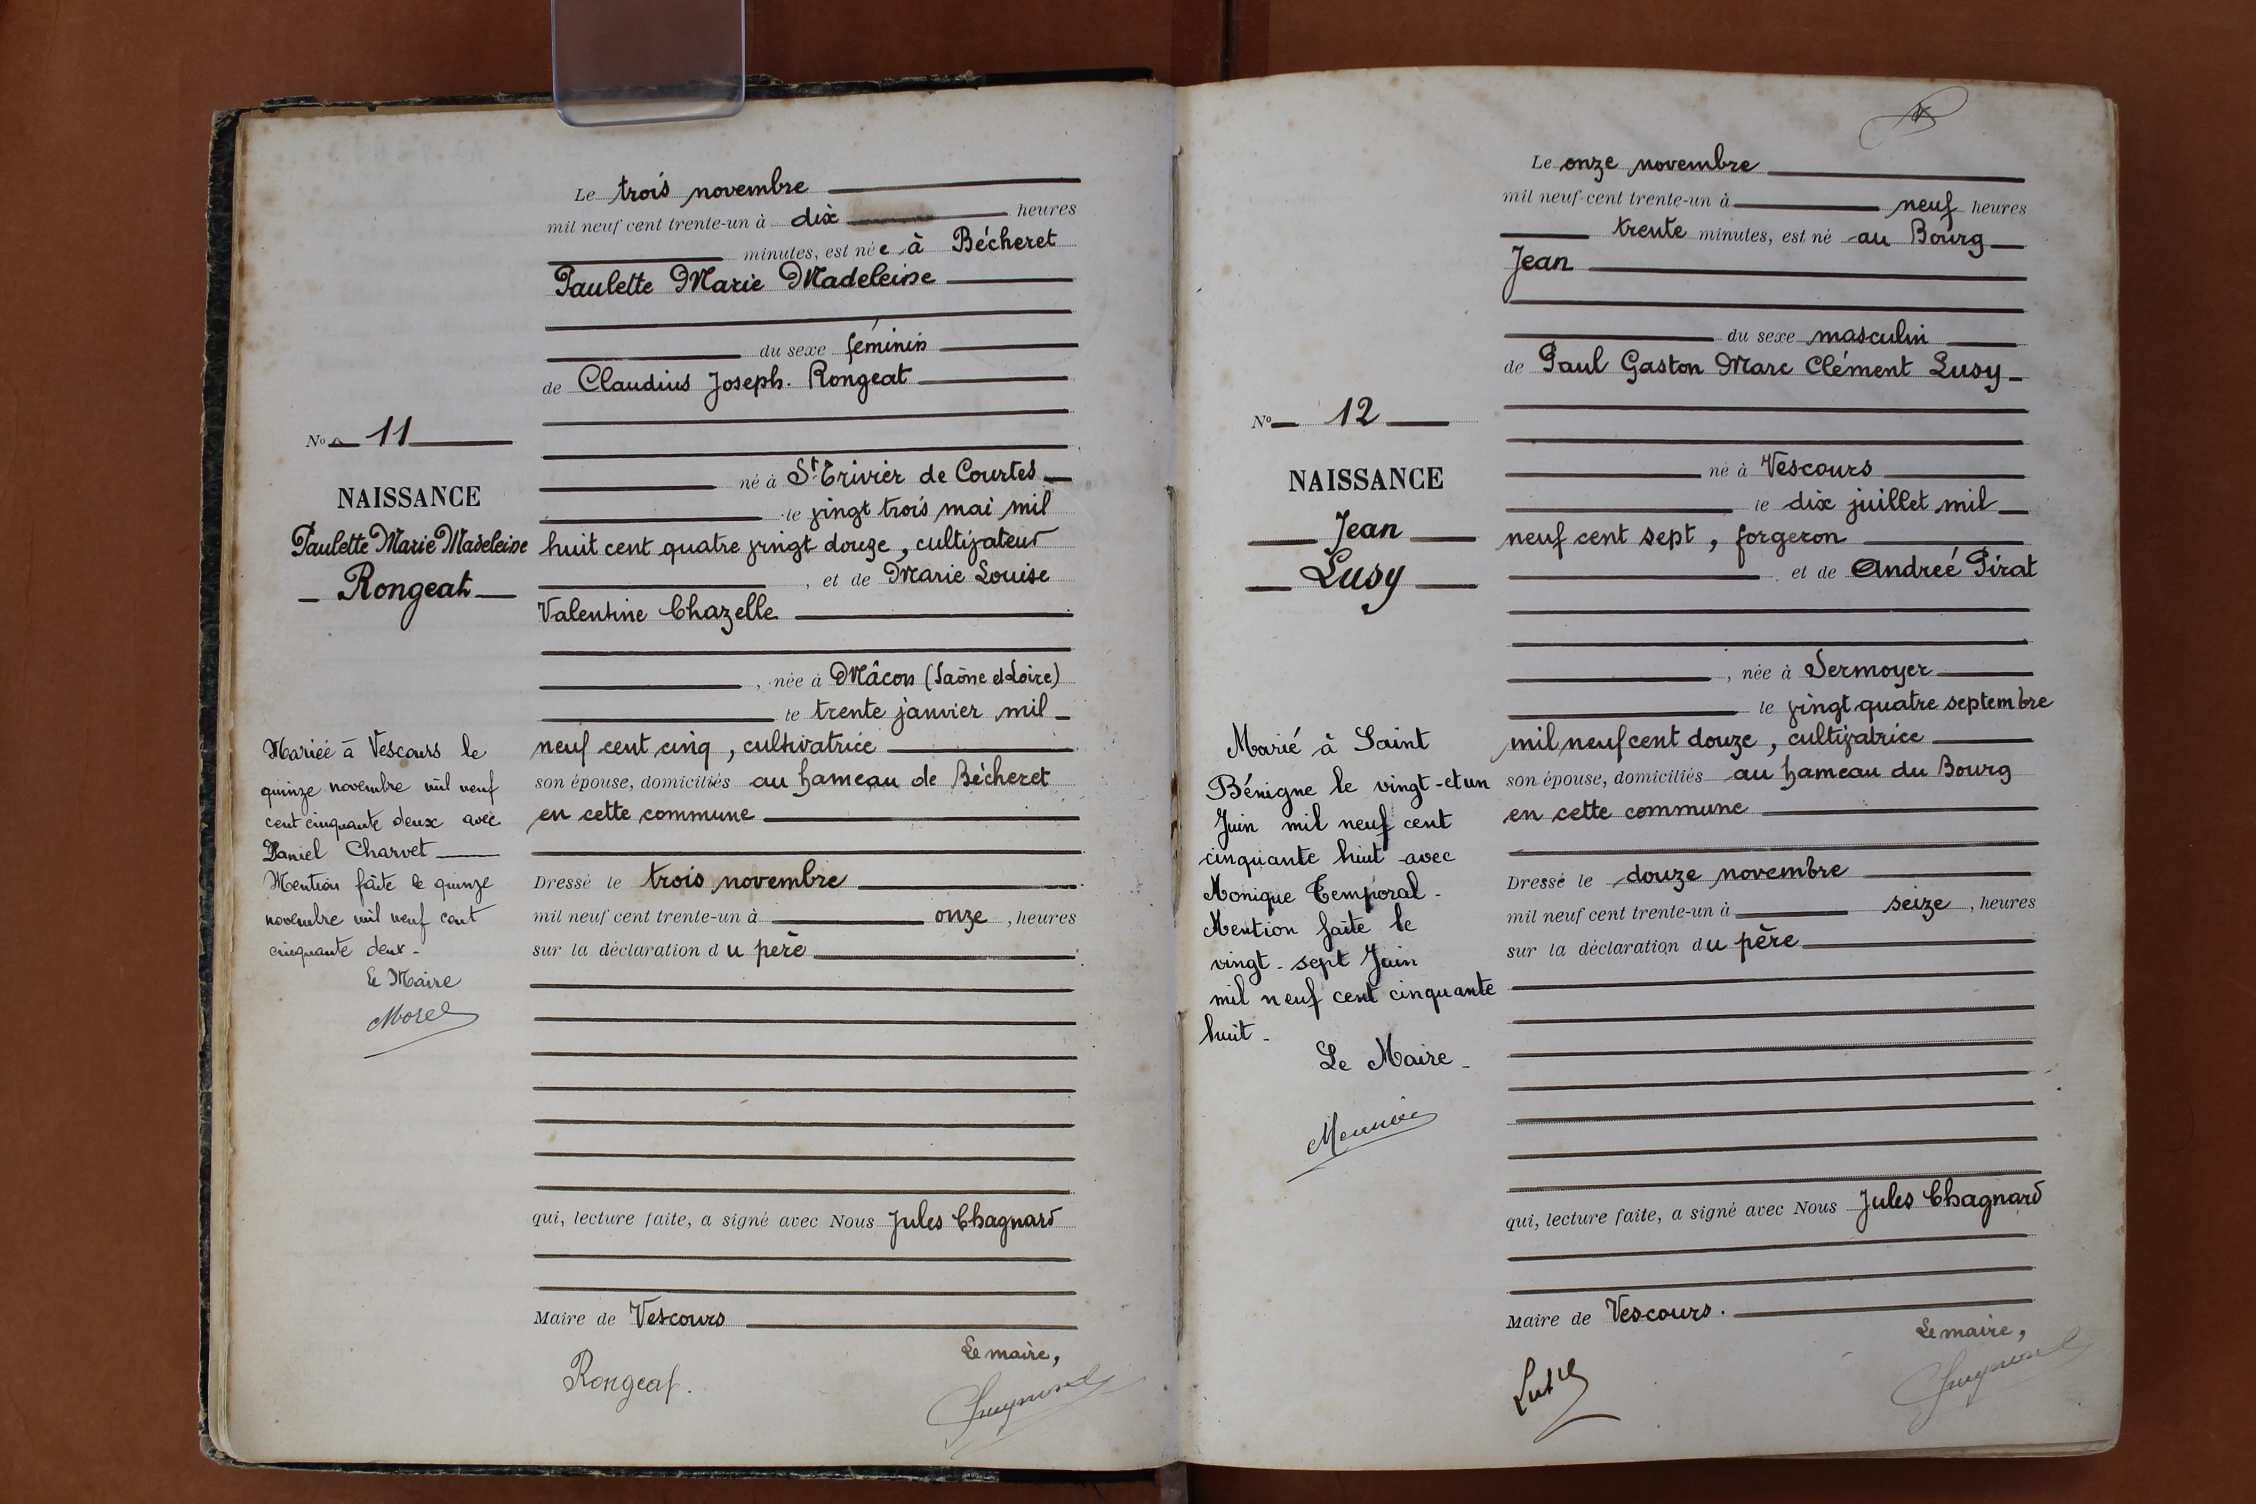 Le trois novembre
mil neuf cent trente-un à dix heures
minutes, est née à Bécheret
Paulette Marie Madeleine
du sexe féminin
de Claudius Joseph. Rongeat
né à St. Trivier de Courtes
le vingt trois mai mil
huit cent quatre vingt douze, cultivateur
, et de Marie Louise
Valentine Chazelle
, née à Mâcon (Saône et Loire)
le trente janvier mil
neuf cent cinq, cultivatrice
son épouse, domiciliés au hameau de Bécheret
en cette commune
Dressé le trois novembre
mil neuf cent trente-un à onze, heures
sur la déclaration du père
qui, lecture faite, a signé avec Nous Jules Chagnard
Maire de Vescours
Le maire,
Rongeat.
No 11
NAISSANCE
Paulette Marie Madeleine
Rongeat
Mariée à Vescours le
quinze novembre mil neuf
cent cinquante deux avec
Daniel Charvet
Mention faite le quinze
novembre mil neuf cent
cinquante deux-
Le Maire
Morel
Le onze novembre
mil neuf cent trente-un à neuf heures
trente minutes, est né au Bourg
Jean
du sexe masculin
de Paul Gaston Marc Clément Lusy
né à Vescours
le dix juillet mil
neuf cent sept, forgeron
et de Andreé Pirat
, née à Sermoyer
le vingt quatre septembre
mil neuf cent douze, cultivatrice
son épouse, domiciliés au hameau du Bourg
en cette commune
Dressé le douze novembre
mil neuf cent trente-un à seize, heures
sur la déclaration du père
qui, lecture faite, a signé avec Nous Jules Chagnard
Maire de Vescours.
Le maire,
Lusy
No 12
NAISSANCE
Jean
Lusy
Marié à Saint
Bénigne le vingt-et un
Juin mil neuf cent
cinquante huit avec
Monique Temporal-
Mention faite le
vingt-sept Juin
mil neuf cent cinquante
huit-
Le Maire-